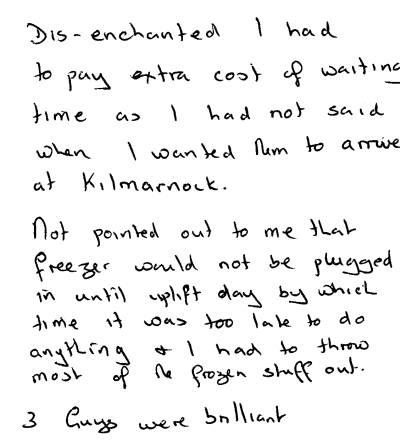 Dis-enchanted I had
to pay extra cost of waiting
time as I had not said
when I wanted them to arrive
at Kilmarnock.
Not pointed out to me that
freezer would not be plugged
in until uplift day by which
time it was too late to do
anything & I had to throw
most of the frozen stuff out.
3 Guys were brilliant